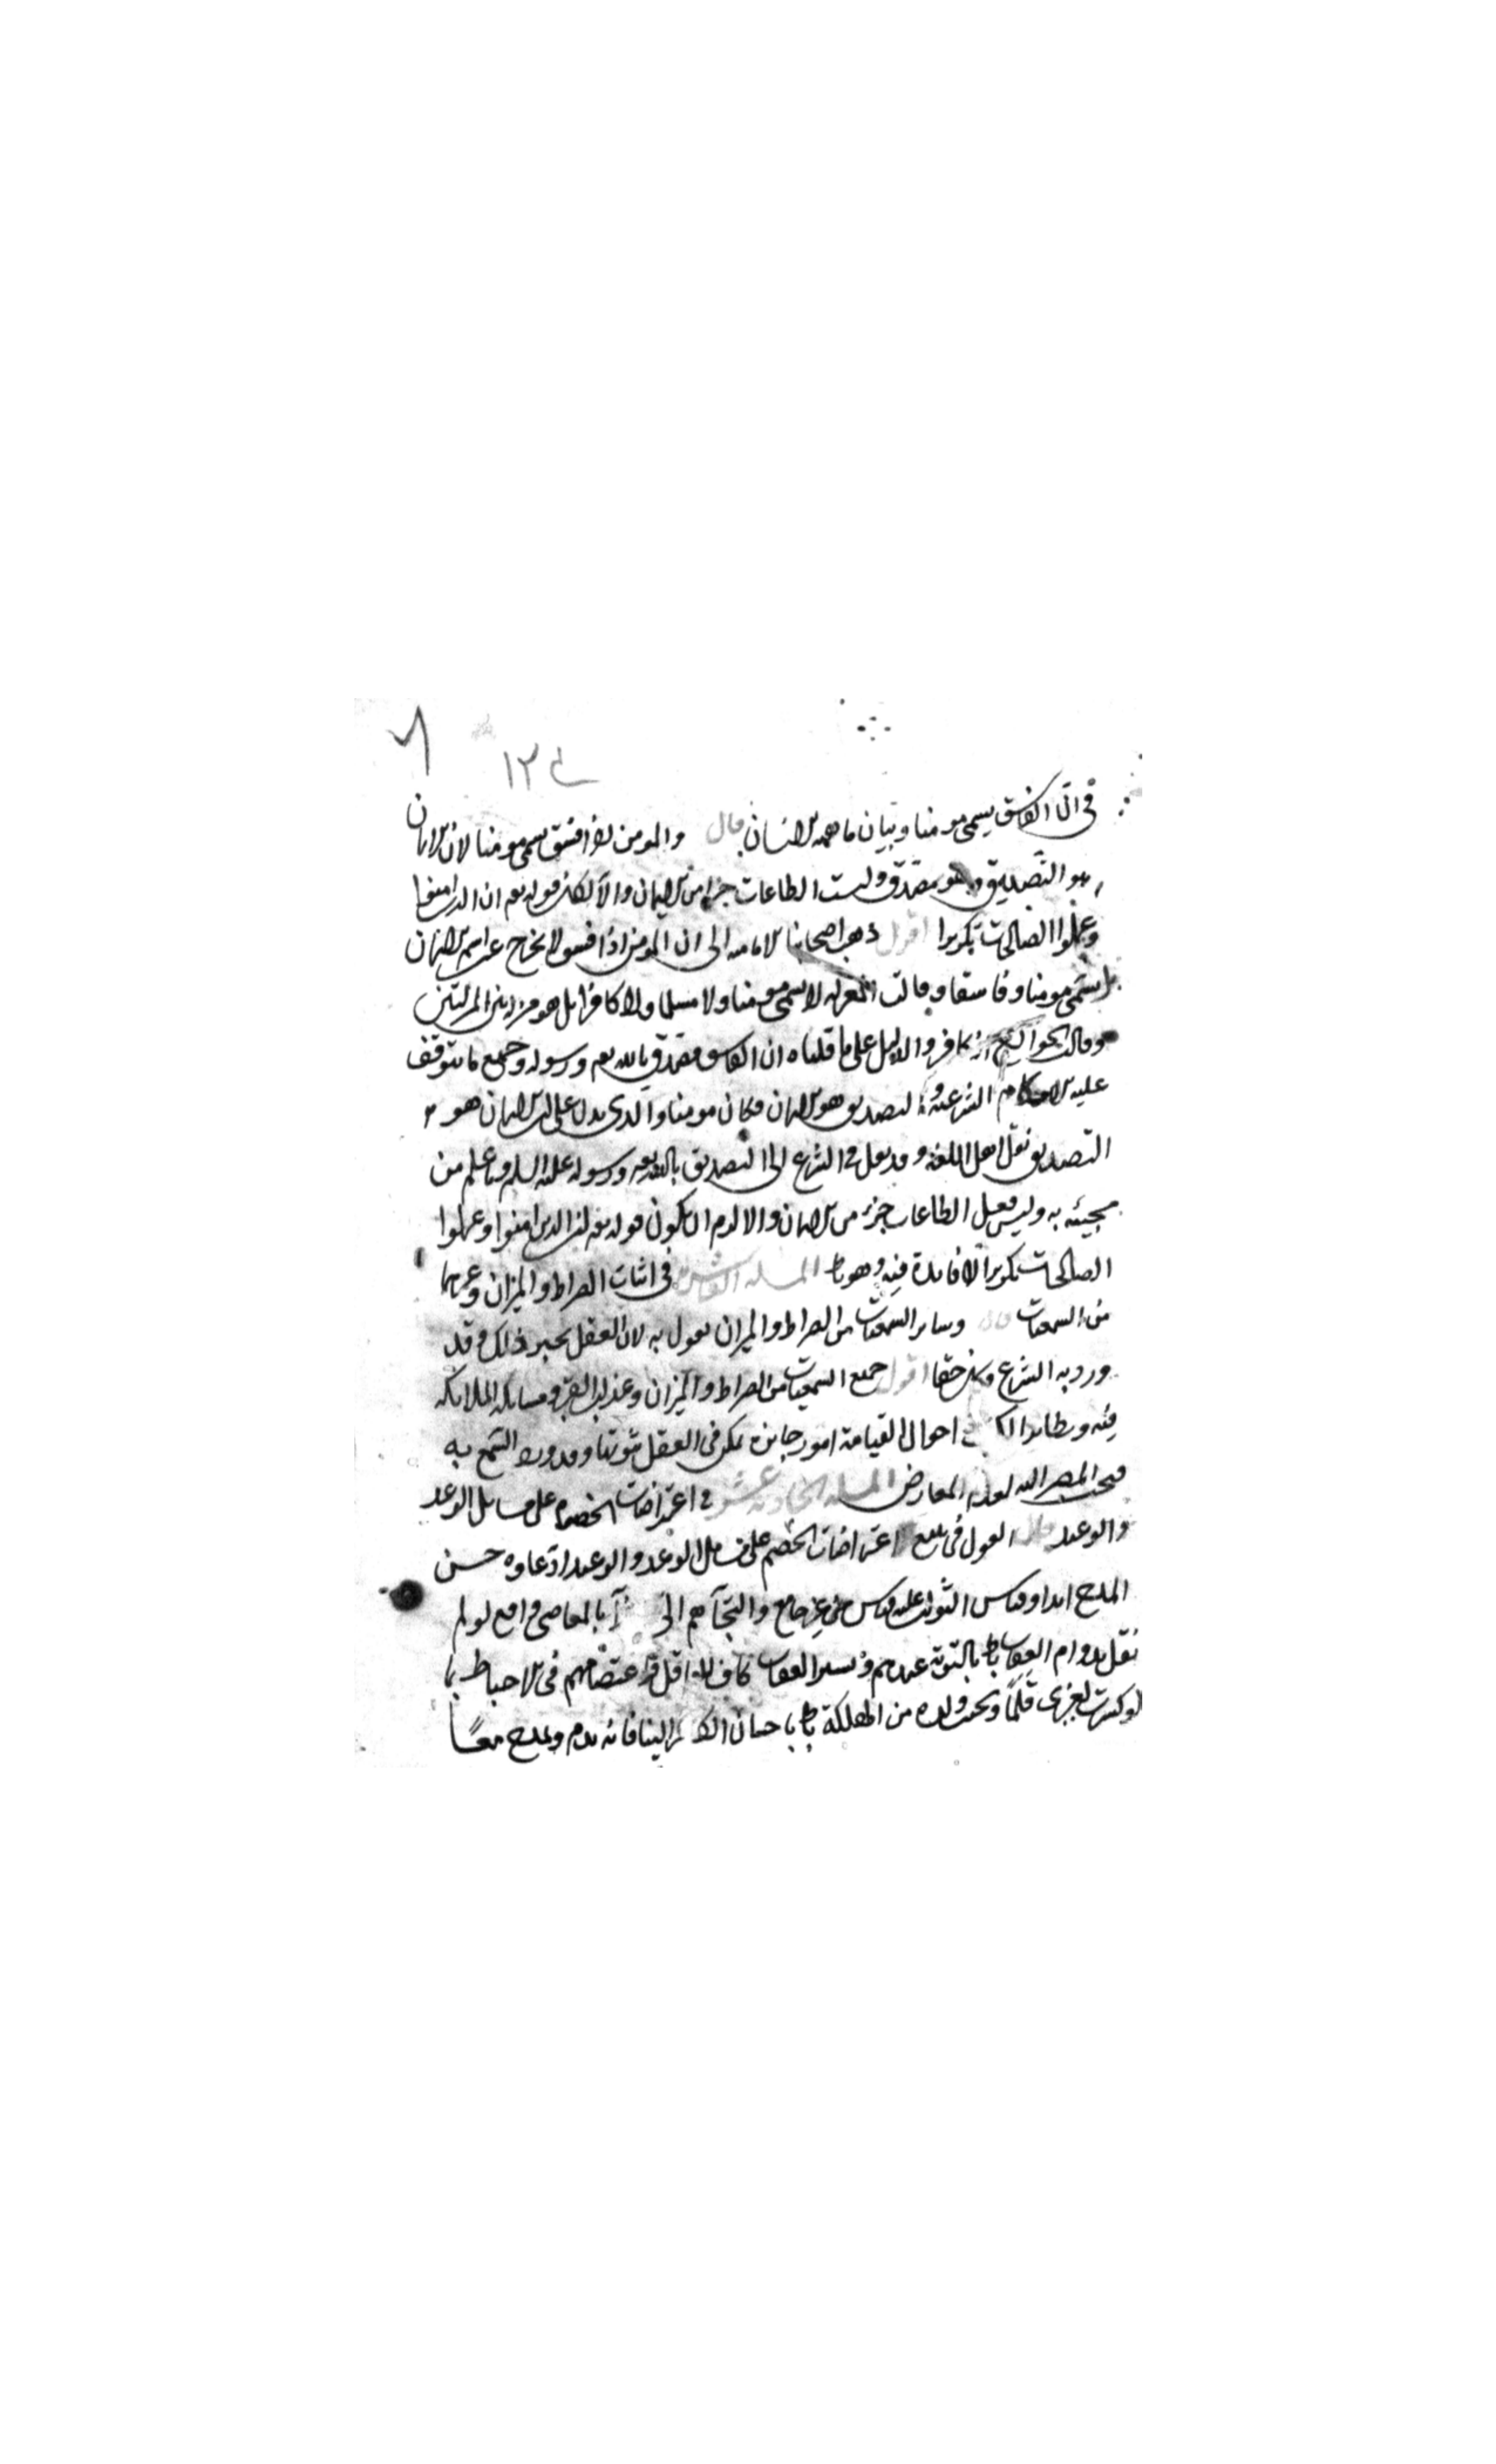 ١٢ع
في ان الفاسق يسمى مومنا وبيان ماهيه الانسان قال والمومن اذا فسق يسمى مومنا لان الايمان
هو التصديق وهو مصدق وليست الطاعات جزا من الايمان والا لكان قوله تعالى ان الذين امنوا
وعملوا الصالحات تكريرا اقول ذهب اصحابنا الاماميه الى ان المومن اذا فسق لا يخرج عن اسم الايمان
بل يسمى مومنا وفاسقا وقالت المعتزله لا يسمى مومنا ولا مسلما ولا كافرا بل هو منزله بين المنزلتين
وقالت الخوارج انه كافر والدليل على ما قلناه ان الفاسق مصدق بالله تعالى ورسوله وجميع ما يتوقف
عليه الاحكام الشرعيه والتصديق هو الايمان فكان مومنا والذى يدل على ان الايمان هو
التصديق نقل اهل اللغه وقد نقل في الشرع الى التصديق بالله تعالى ورسوله عليه السلم وما علم من
مجيئه به وليس فعل الطاعات جزء من الايمان والا لزم ان يكون قوله تعالى ان الذين امنوا وعملوا
الصالحات تكريرا لا فايدة فيه وهو بط المسله العاشرة في اثبات الصراط والميزان وغيرهما
من السمعيات قال وساير السمعيات من الصراط والميزان نقول به لان العقل يجيز ذلك وقد
ورد به الشرع وكان حقا اقول جميع السمعيات من الصراط والميزان وعذاب القبر ومسايله الملايكه
فيه وتطاير الكتب احوال القيامة امور جايزة يمكن في العقل ثبوتها وقد ورد السمع به
فيجب المصير اليه لعدم المعارض المسله الحاديه عشر في اعتراضات الخصوم على مسايل الوعد
والوعيد قال القول في تتبع اعتراضات الخصم على مسايل الوعد والوعيد ادعاوه حسن
المدح ابدا وقياس الثواب عليه قياس من غير جامع والتجآهم الى بالمعاصى واقع لو لم
نقل بدوام العقاب بط بالتوبه عندهم ويسير العقاب كاف اقل اعتضامهم في الاحباط بما
لو كسرت لغيرى قلما ونجت ولده من الهلكة بط باحسان الكافر الينا فانه يذم ويمدح معا